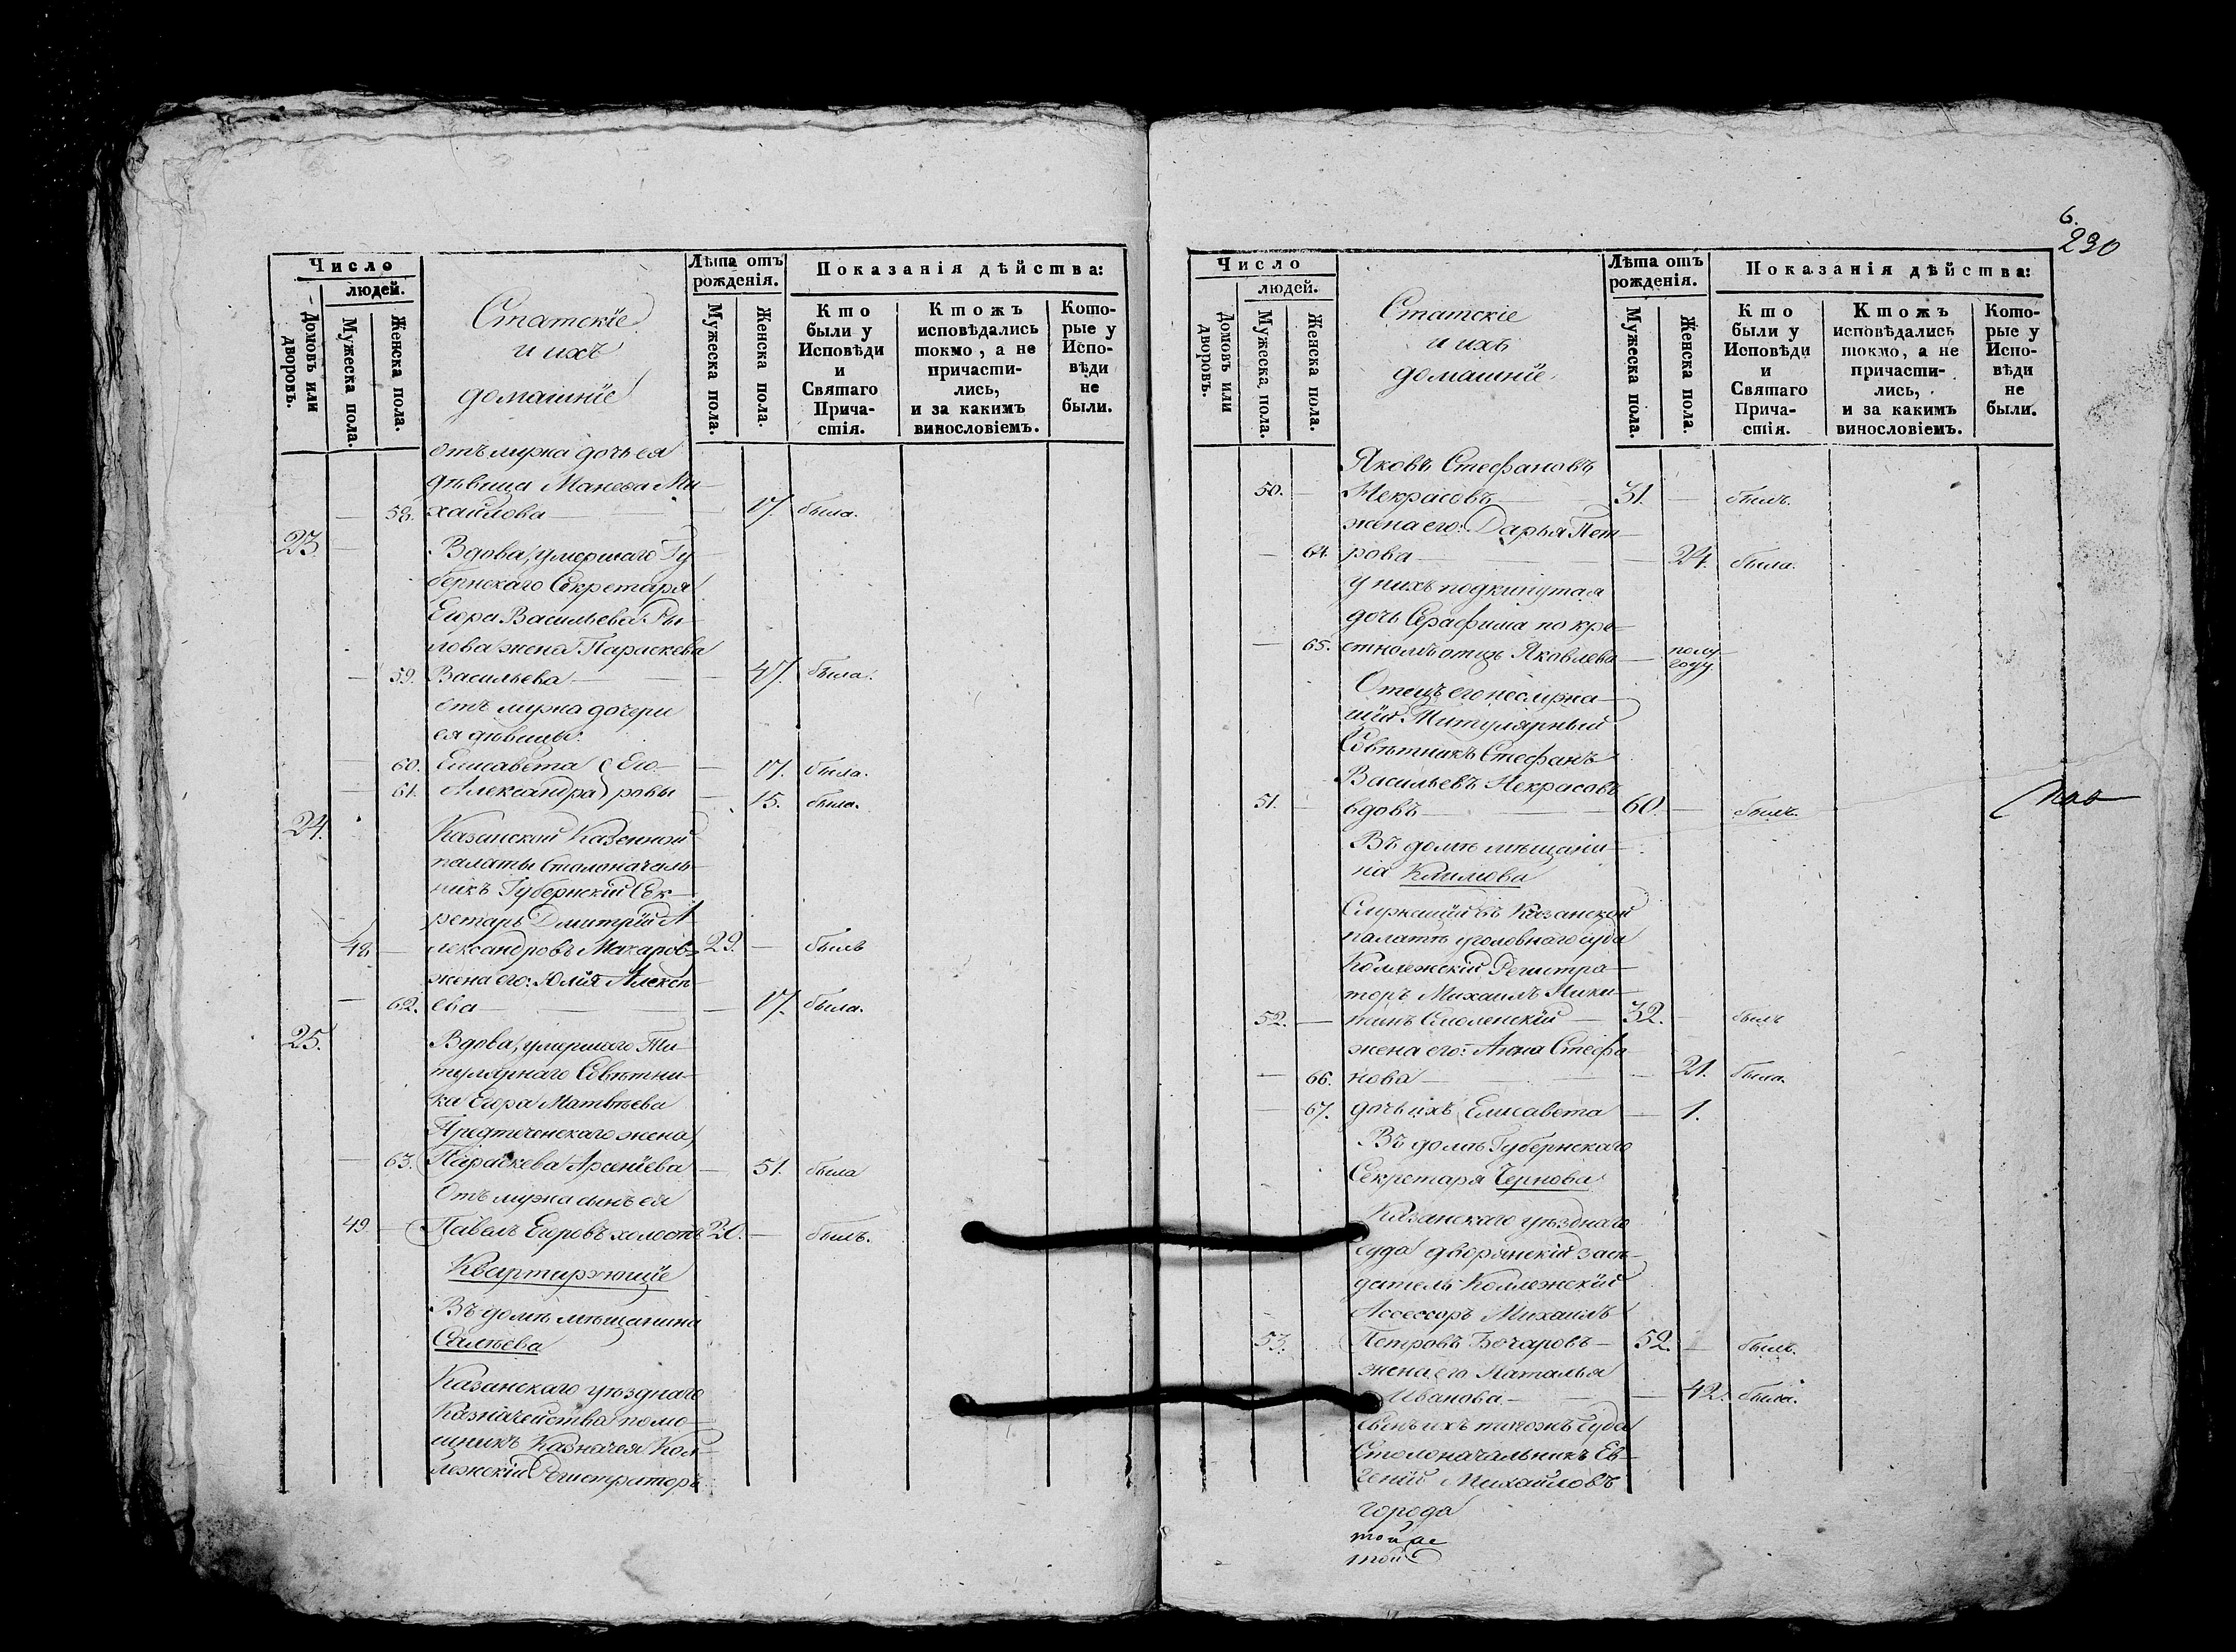 Число
людей.
Домовъ или дворовъ.
Мужеска пола.
Женска пола.
Статскіе
и ихъ
домашніе
Лѣта отъ
рожденія.
Мужеска пола.
Женска пола.
Показанія дѣйства:
Кто
были у
Исповѣди
и
Святаго
Прича-
стія.
Ктожъ
исповѣдались
токмо, а не
причасти-
лись,
и за какимъ
винословіемъ.
Кото-
рые у
Испо-
вѣди
не
были.
отъ мужа дочь ея
дѣвица Ми-
58. хайлова 17. была.
23. Вдова, умершаго Гу-
бернскаго Секретаря
Егора Васильева Ры-
лова жена Параскева
59. Васильева 47. была.
отъ мужа дочери
ея дѣвицы:
60. Елисавета Его- 17. была.
61. Александра ровы 15. была.
24. Казанской Казенной
палаты Столоначаль-
никъ Губернскій Сек-
ретарь Дмитрій А-
48 лександровъ Макаровъ 29. былъ
жена его: Юлія Алексѣ-
62. ева 17. была.
25. Вдова, умершаго Ти-
тулярнаго Совѣтни-
ка Егора Матвѣева
Предтеченскаго жена,
63. Параскева Арсеніева 51. была
Отъ мужа сынъ ея
49 Павелъ Егоровъ холостъ 20. былъ.
Квартирующіе
Въ домѣ мѣщанина
Казанскаго уѣзднаго
Казначейства помо-
щникъ Казначея Кол-
лежскій Регистраторъ
6.
230
Число
людей.
Домовъ или дворовъ.
Мужеска пола.
Женска пола.
Статскіе
и ихъ
домашніе
Лѣта отъ
рожденія.
Мужеска пола.
Женска пола.
Показанія дѣйства:
Кто
были у
Исповѣди
и
Святаго
Прича-
стія.
Ктожъ
исповѣдались
токмо, а не
причасти-
лись,
и за какимъ
винословіемъ.
Кото-
рые у
Испо-
вѣди
не
были.
Яковъ Стефановъ
50. Некрасовъ 31. былъ.
жена его: Дарья Пет-
64. рова 24. была.
у нихъ подкинутая
дочь Серафима по кре-
65. стномъ отцѣ Яковлева полу-
году.
Отецъ его неслужа-
щій Титулярный
Совѣтникъ Стефанъ
Васильевъ Некрасовъ
51. вдовъ 60. былъ.
Въ домѣ мѣщани-
на Климова
Служащій въ Казанской
палатѣ уголовнаго суда
Коллежскій Регистра-
торъ Михаилъ Ники-
52. тинъ Смоленскій 32. былъ
жена его: Анна Стефа-
66. нова 21. была.
67. дочь ихъ Елисавета 1.
Въ домѣ Губернскаго
Секретаря Чернова
Казанскаго уѣзднаго
суда дворянскій засѣ-
датель Коллежскій
Ассессоръ Михаилъ
53. Петровъ Бочаровъ 52. былъ.
жена его Наталья
Иванова 42. была.
сынъ ихъ тогожъ суда
Столоначальникъ Ев-
геній Михайловъ
города